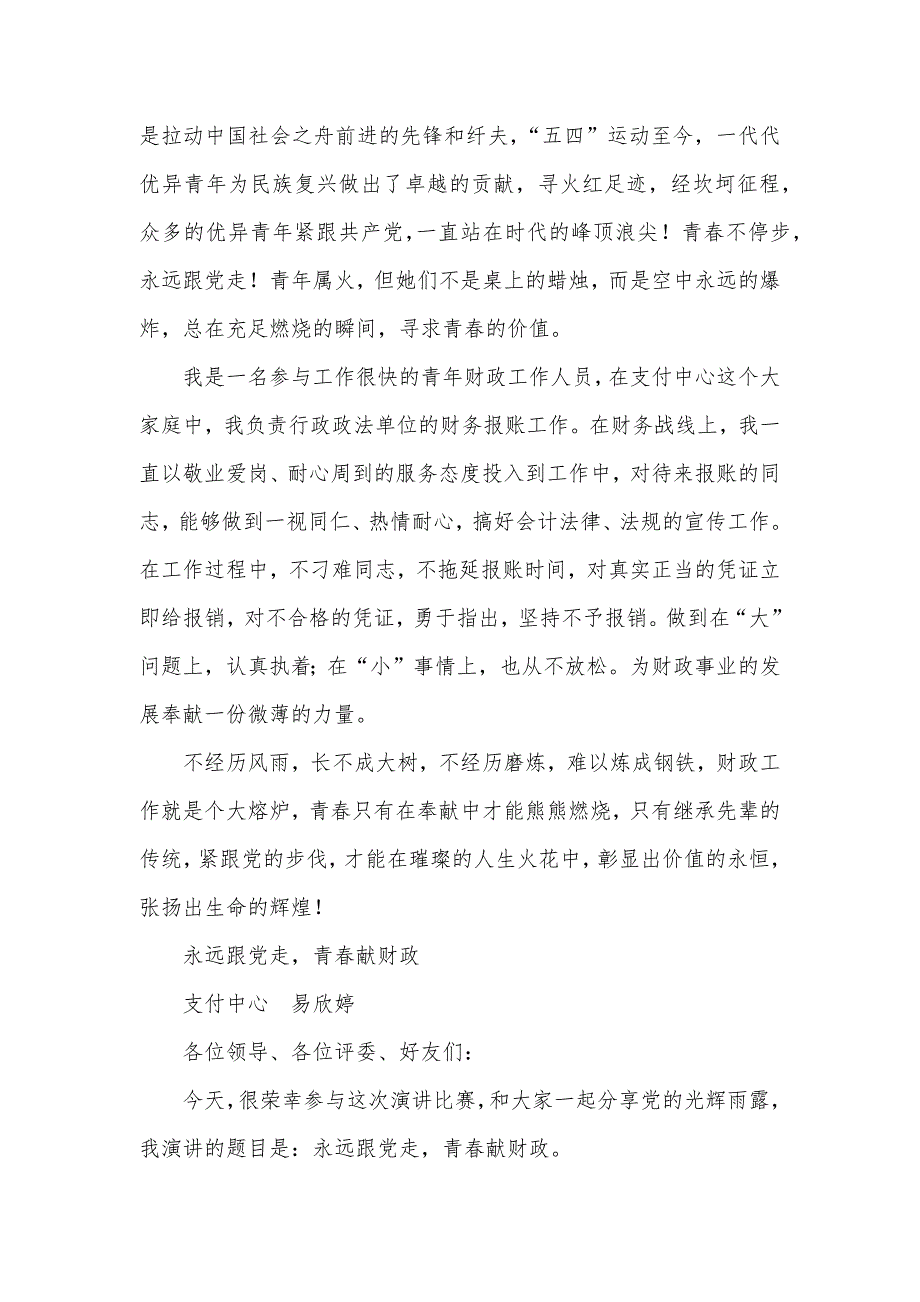 是拉动中国社会之舟前进的先锋和纤夫，“五四”运动至今，一代代
优异青年为民族复兴做出了卓越的贡献，寻火红足迹，经坎坷征程，
众多的优异青年紧跟共产党，一直站在时代的峰顶浪尖！青春不停步，
永远跟党走！青年属火，但她们不是桌上的蜡烛，而是空中永远的爆
炸，总在充足燃烧的瞬间，寻求青春的价值。
我是一名参与工作很快的青年财政工作人员，在支付中心这个大
家庭中，我负责行政政法单位的财务报账工作。在财务战线上，我一
直以敬业爱岗、耐心周到的服务态度投入到工作中，对待来报账的同
志，能够做到一视同仁、热情耐心，搞好会计法律、法规的宣传工作。
在工作过程中，不刁难同志，不拖延报账时间，对真实正当的凭证立
即给报销，对不合格的凭证，勇于指出，坚持不予报销。做到在“大”
问题上，认真执着；在“小”事情上，也从不放松。为财政事业的发
展奉献一份微薄的力量。
不经历风雨，长不成大树，不经历磨炼，难以炼成钢铁，财政工
作就是个大熔炉，青春只有在奉献中才能熊熊燃烧，只有继承先辈的
传统，紧跟党的步伐，才能在璀璨的人生火花中，彰显出价值的永恒，
张扬出生命的辉煌！
永远跟党走，青春献财政
支付中心　易欣婷
各位领导、各位评委、好友们：
今天，很荣幸参与这次演讲比赛，和大家一起分享党的光辉雨露，
我演讲的题目是：永远跟党走，青春献财政。